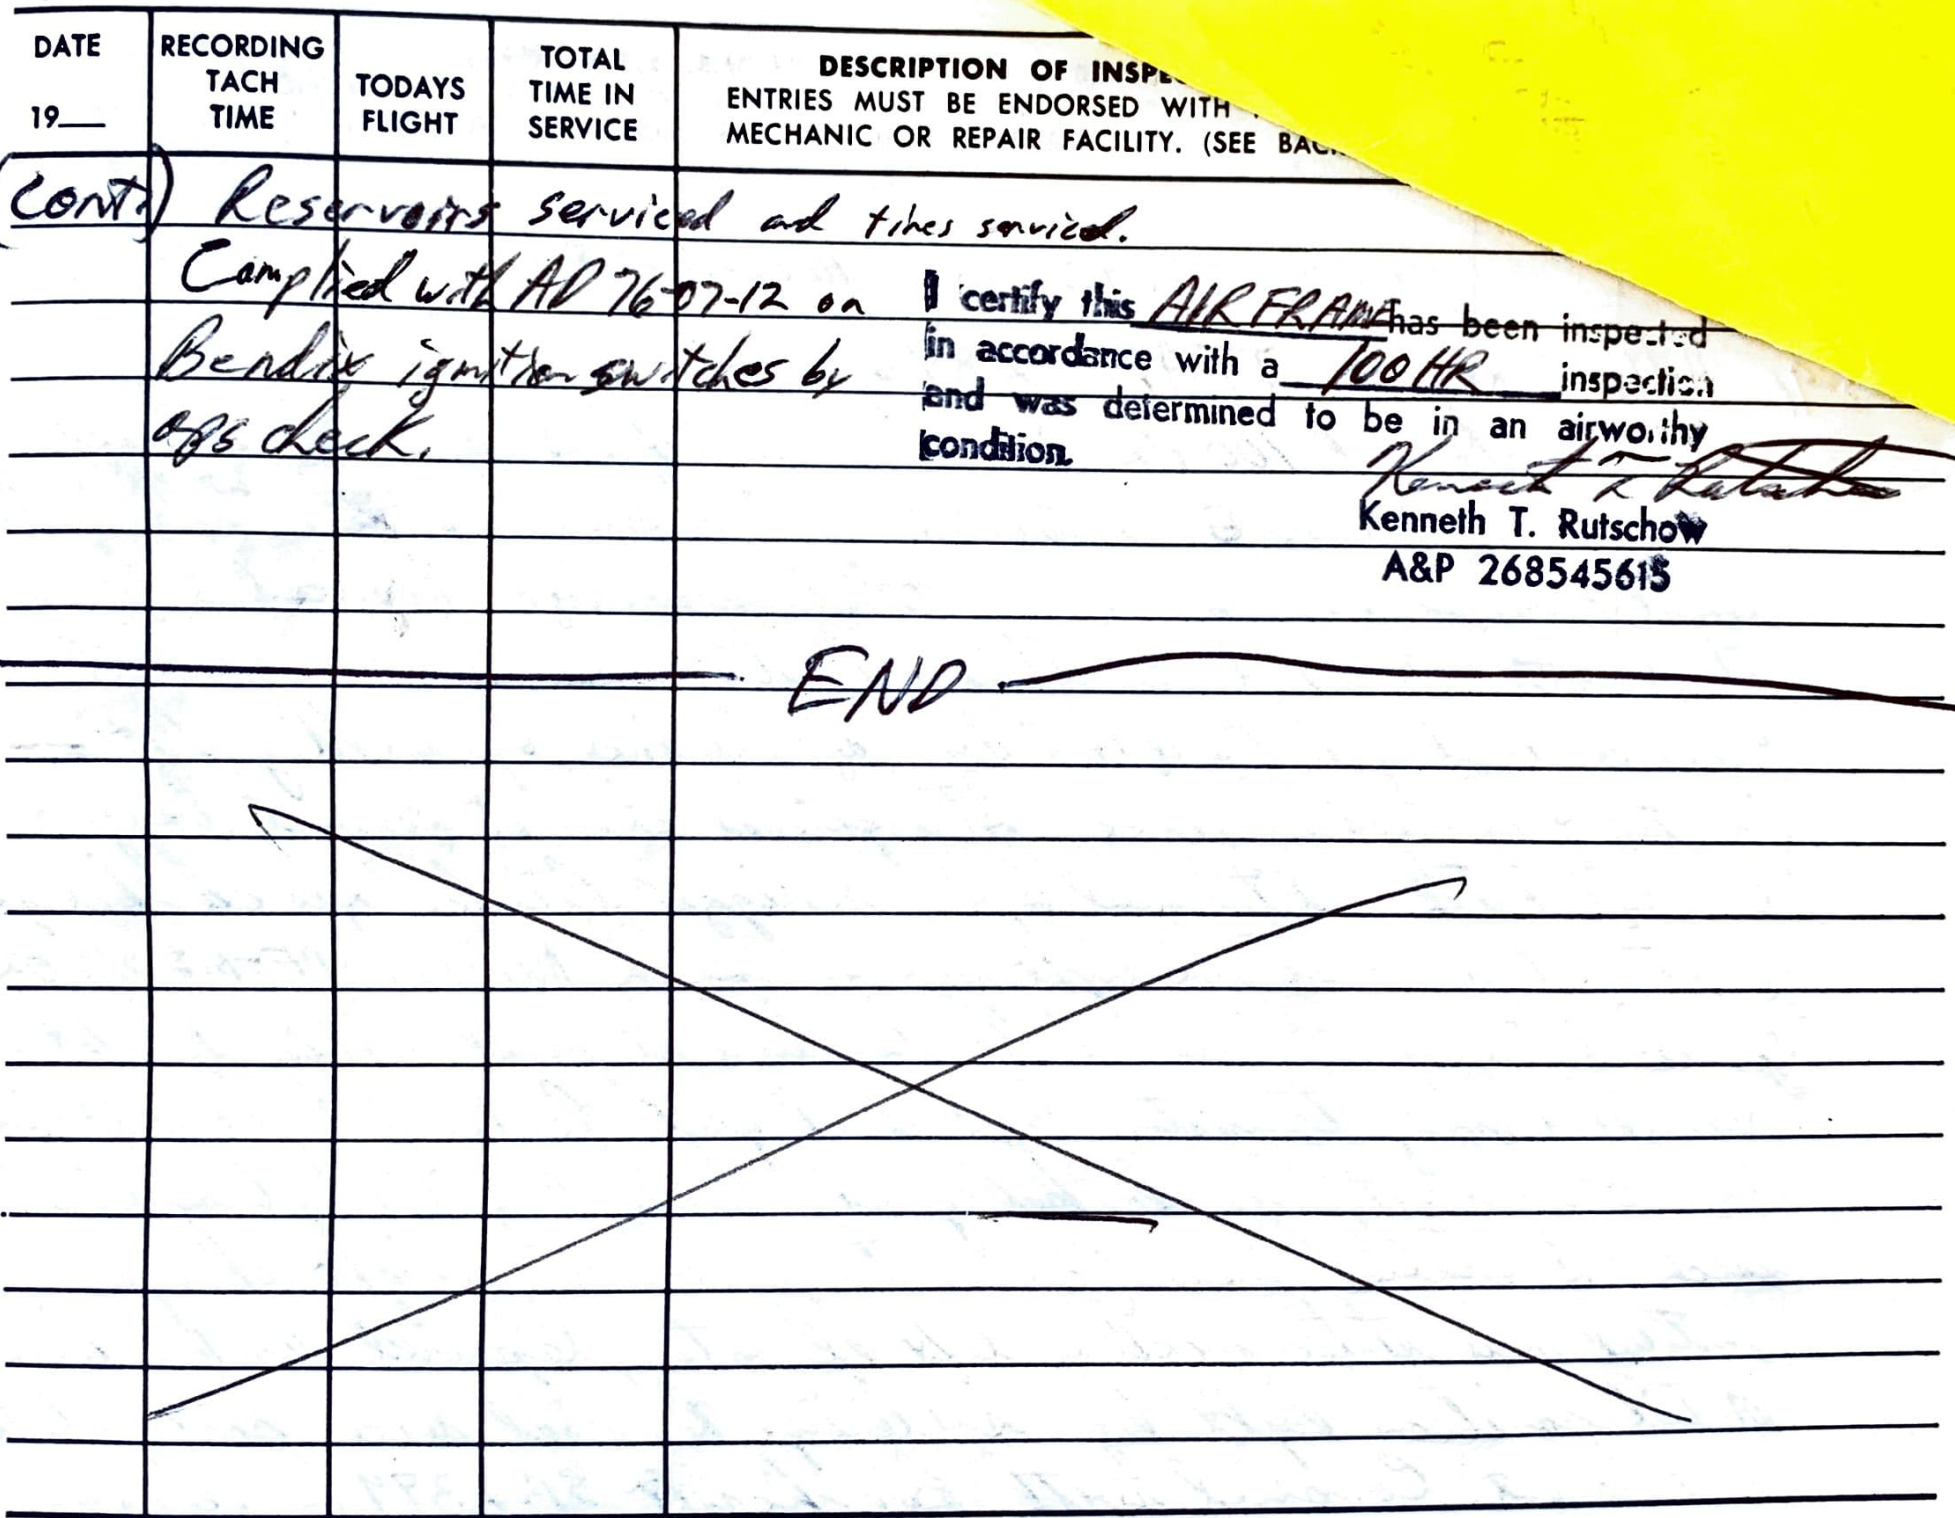 DATE
19__
RECORDING
TACH
TIME
TODAYS
FLIGHT
TOTAL
TIME IN
SERVICE
DESCRIPTION OF
ENTRIES MUST BE ENDORSED WITH
MECHANIC OR REPAIR FACILITY. (SEE
(cont.) Reservoirs serviced and tires serviced.
Complied with AD 76-07-12 on
Bendix ignition switches by
ops check.
I certify this AIRFRAME has been inspected
in accordance with a 100 HR inspection
and was determined to be in an airworthy
condition.
Kenneth T. Rutschow
Kenneth T. Rutschow
A&P 268545615
END